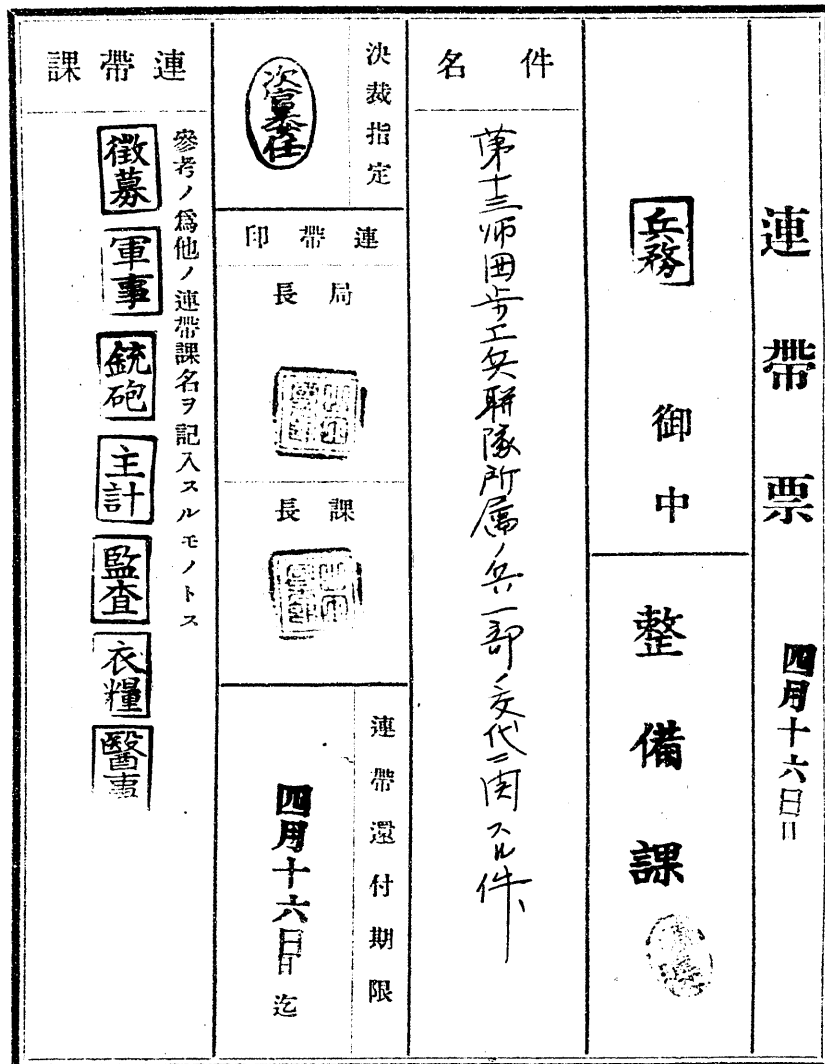 連帶票 四月十六日日
兵務 御中
整備課
件名
第十三師団歩工兵聯隊所属ノ兵一部ノ交代ニ関スル件
決裁指定
次官委任
連帶印
局長
課長
連帶還付期限
四月十六日日迄
連帶課
參考ノ爲他ノ連帶課名ヲ記入スルモノトス
徴募 軍事 銃砲 主計 監査 衣糧 醫事